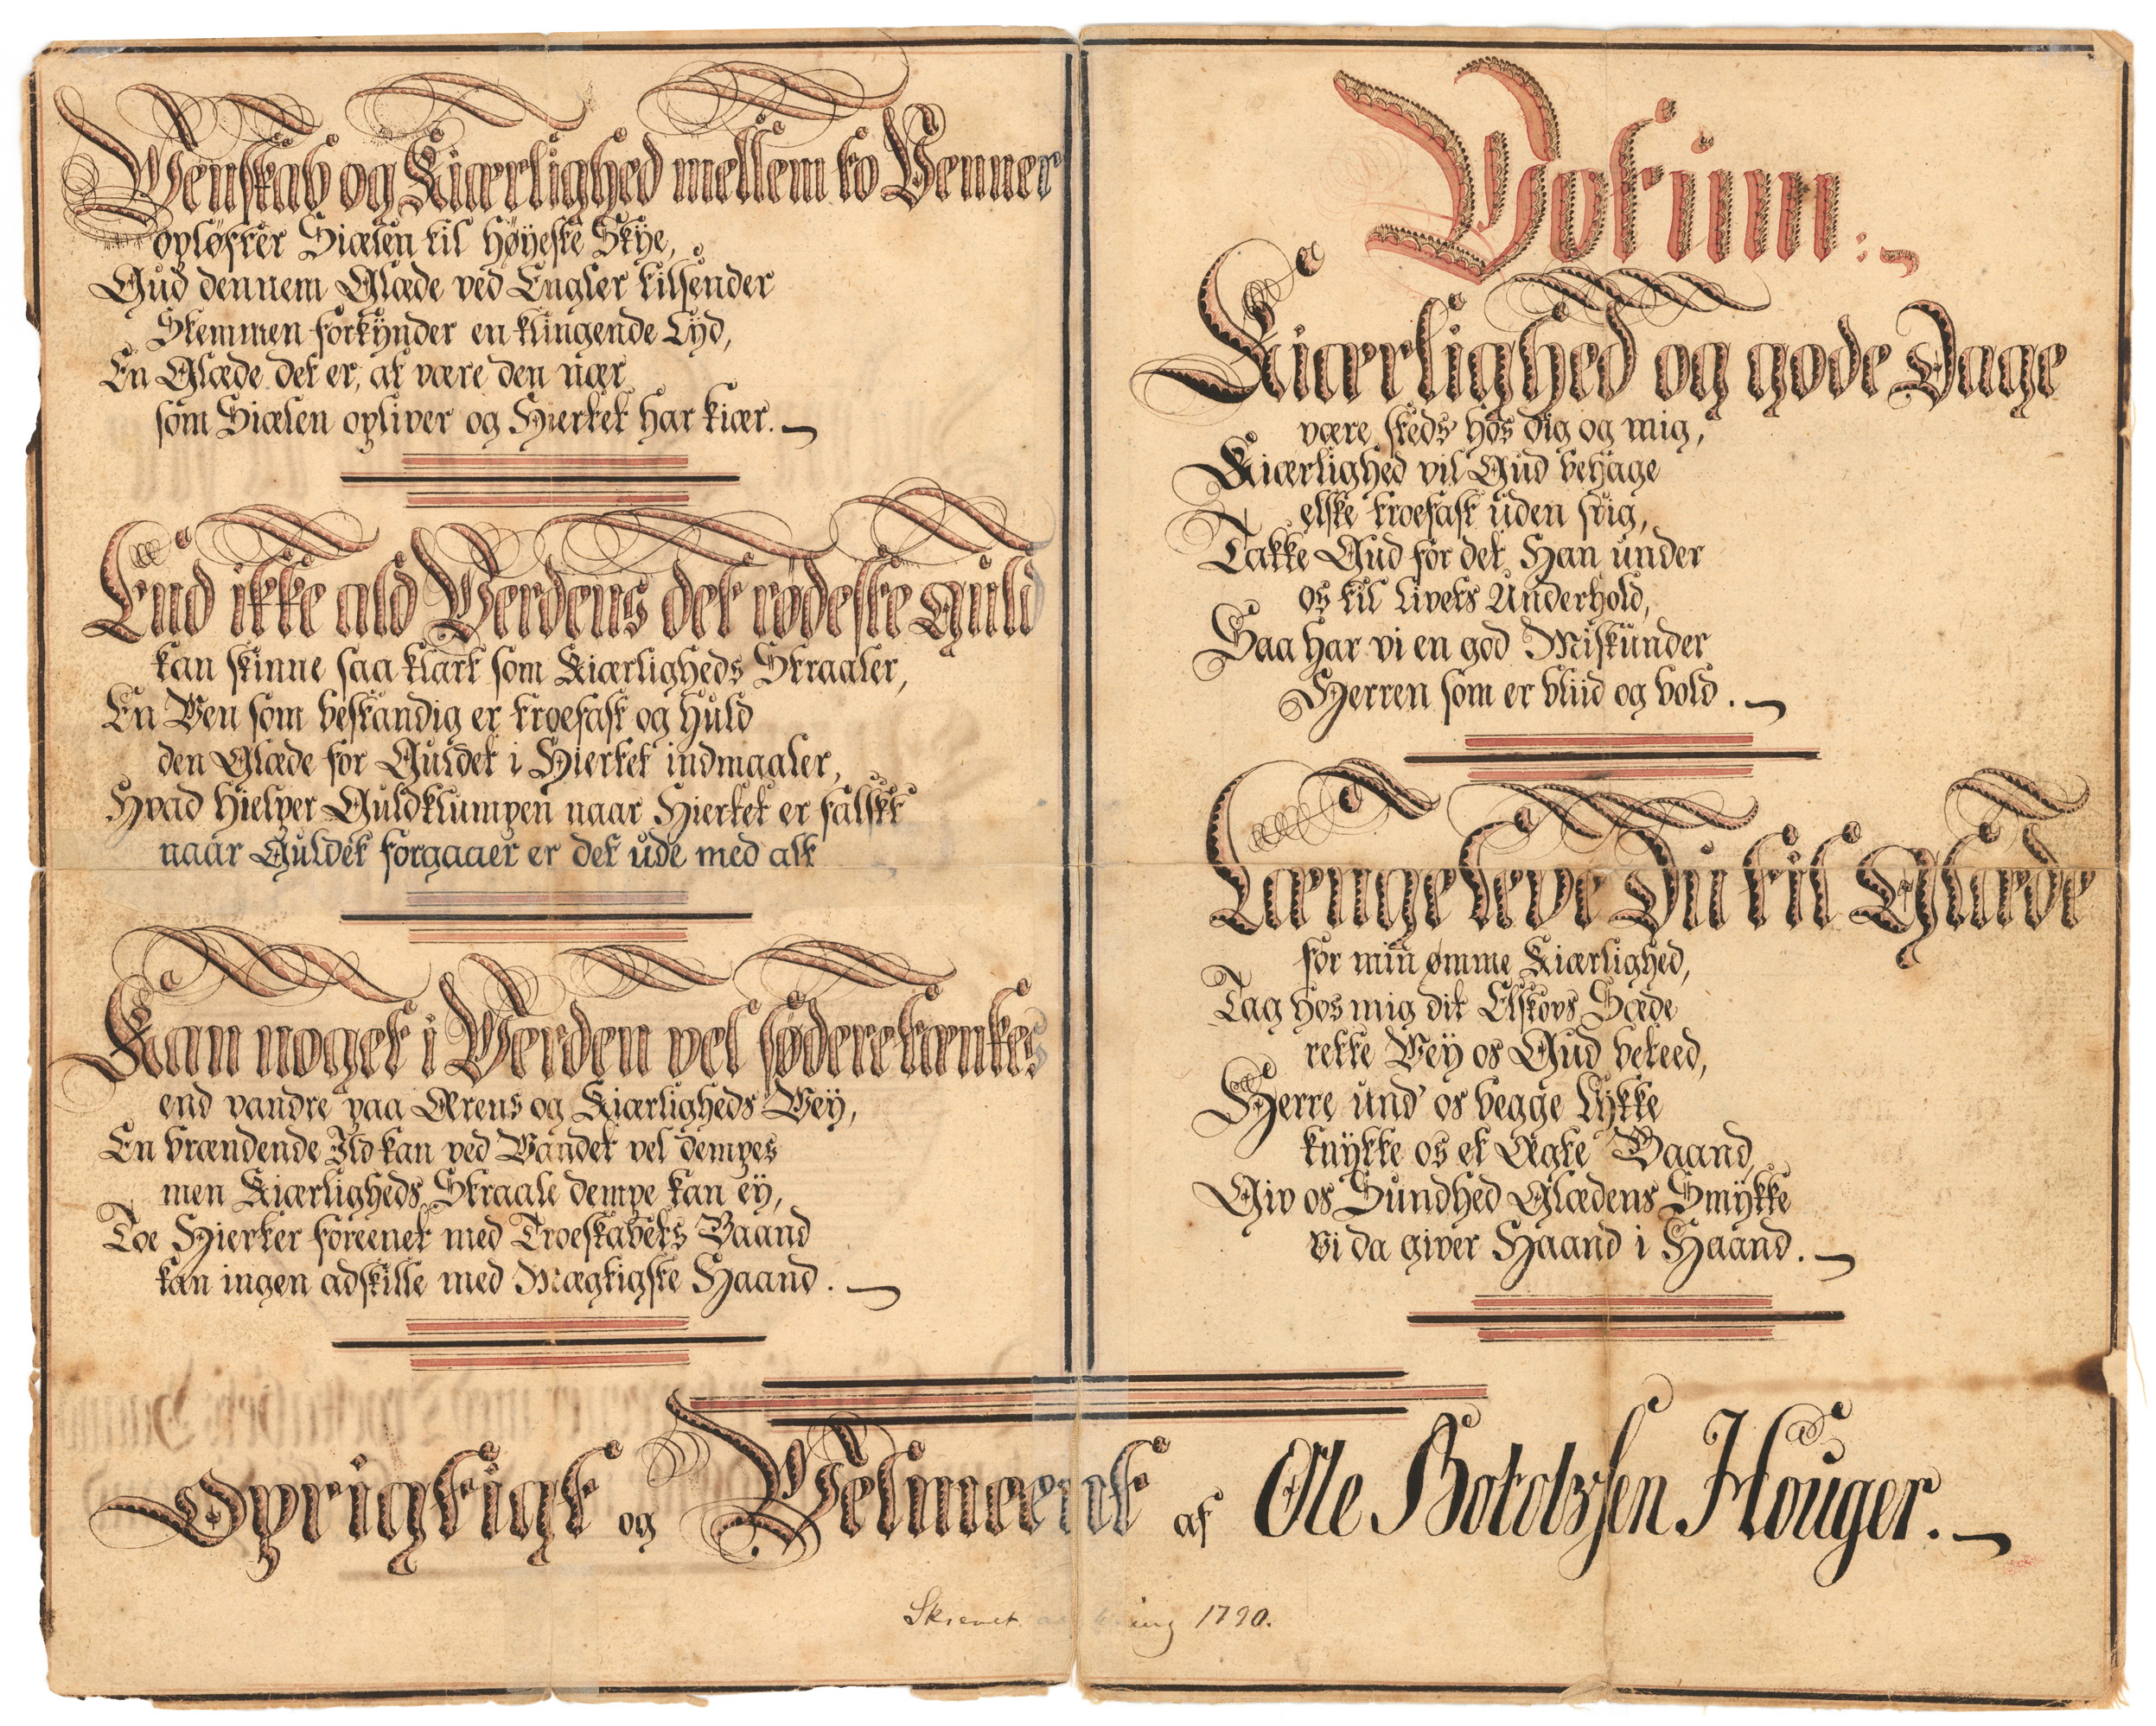 Venskab og Kiærlighed mellem to Venner
opløfter Siælen til høyeste Skye,
Gud dennem Glæde ved Engler tilsender
Stemmen forkynder en klingende Lyd,
En Glæde det er, at være den nær
som Siælen opliver og Hiertet har kiær.
End ikke ald Verdens det rødeste Guld
kan skinne saa klart som Kiærligheds Straaler,
En Ven som bestandig er troefast og huld
den Glæde for Guldet i Hiertet indmaaler,
Hvad hielper Guldklumpen naar Hiertet er falskt
naar Guldet forgaaer er det ude med alt
Kan noget i Verden vel södere tænkes
end vandre paa Ærens og Kiærligheds Vey,
En brændende Ild kan ved Vandet vel dempes
men Kiærligheds Straale dempe kan ey,
Toe Hierter foreenet med Troeskabets Baand
kan ingen adskille med Mægtigste Haand.
Votum.
Kiærlighed og gode Dage
være steds hos dig og mig,
Kiærlighed vil Gud behage
elske troefast uden svig,
Takke Gud for det Han under
os til Livets Underhold,
Saa har vi en god Miskunder
Herren som er bliid og bold.
Længe leve Du til Glæde
for min ømme Kiærlighed,
Tag hos mig dit Elskovs Sæde
rette Vey os Gud beteed,
Herre und os begge Lykke
knytte os et Ægte Baand,
Giv os Sundhed Glædens Smykke
vi da giver Haand i Haand.
Oprigtigt og Velmeent af Ole Botolvsen Houger.
Skrevet 1790.